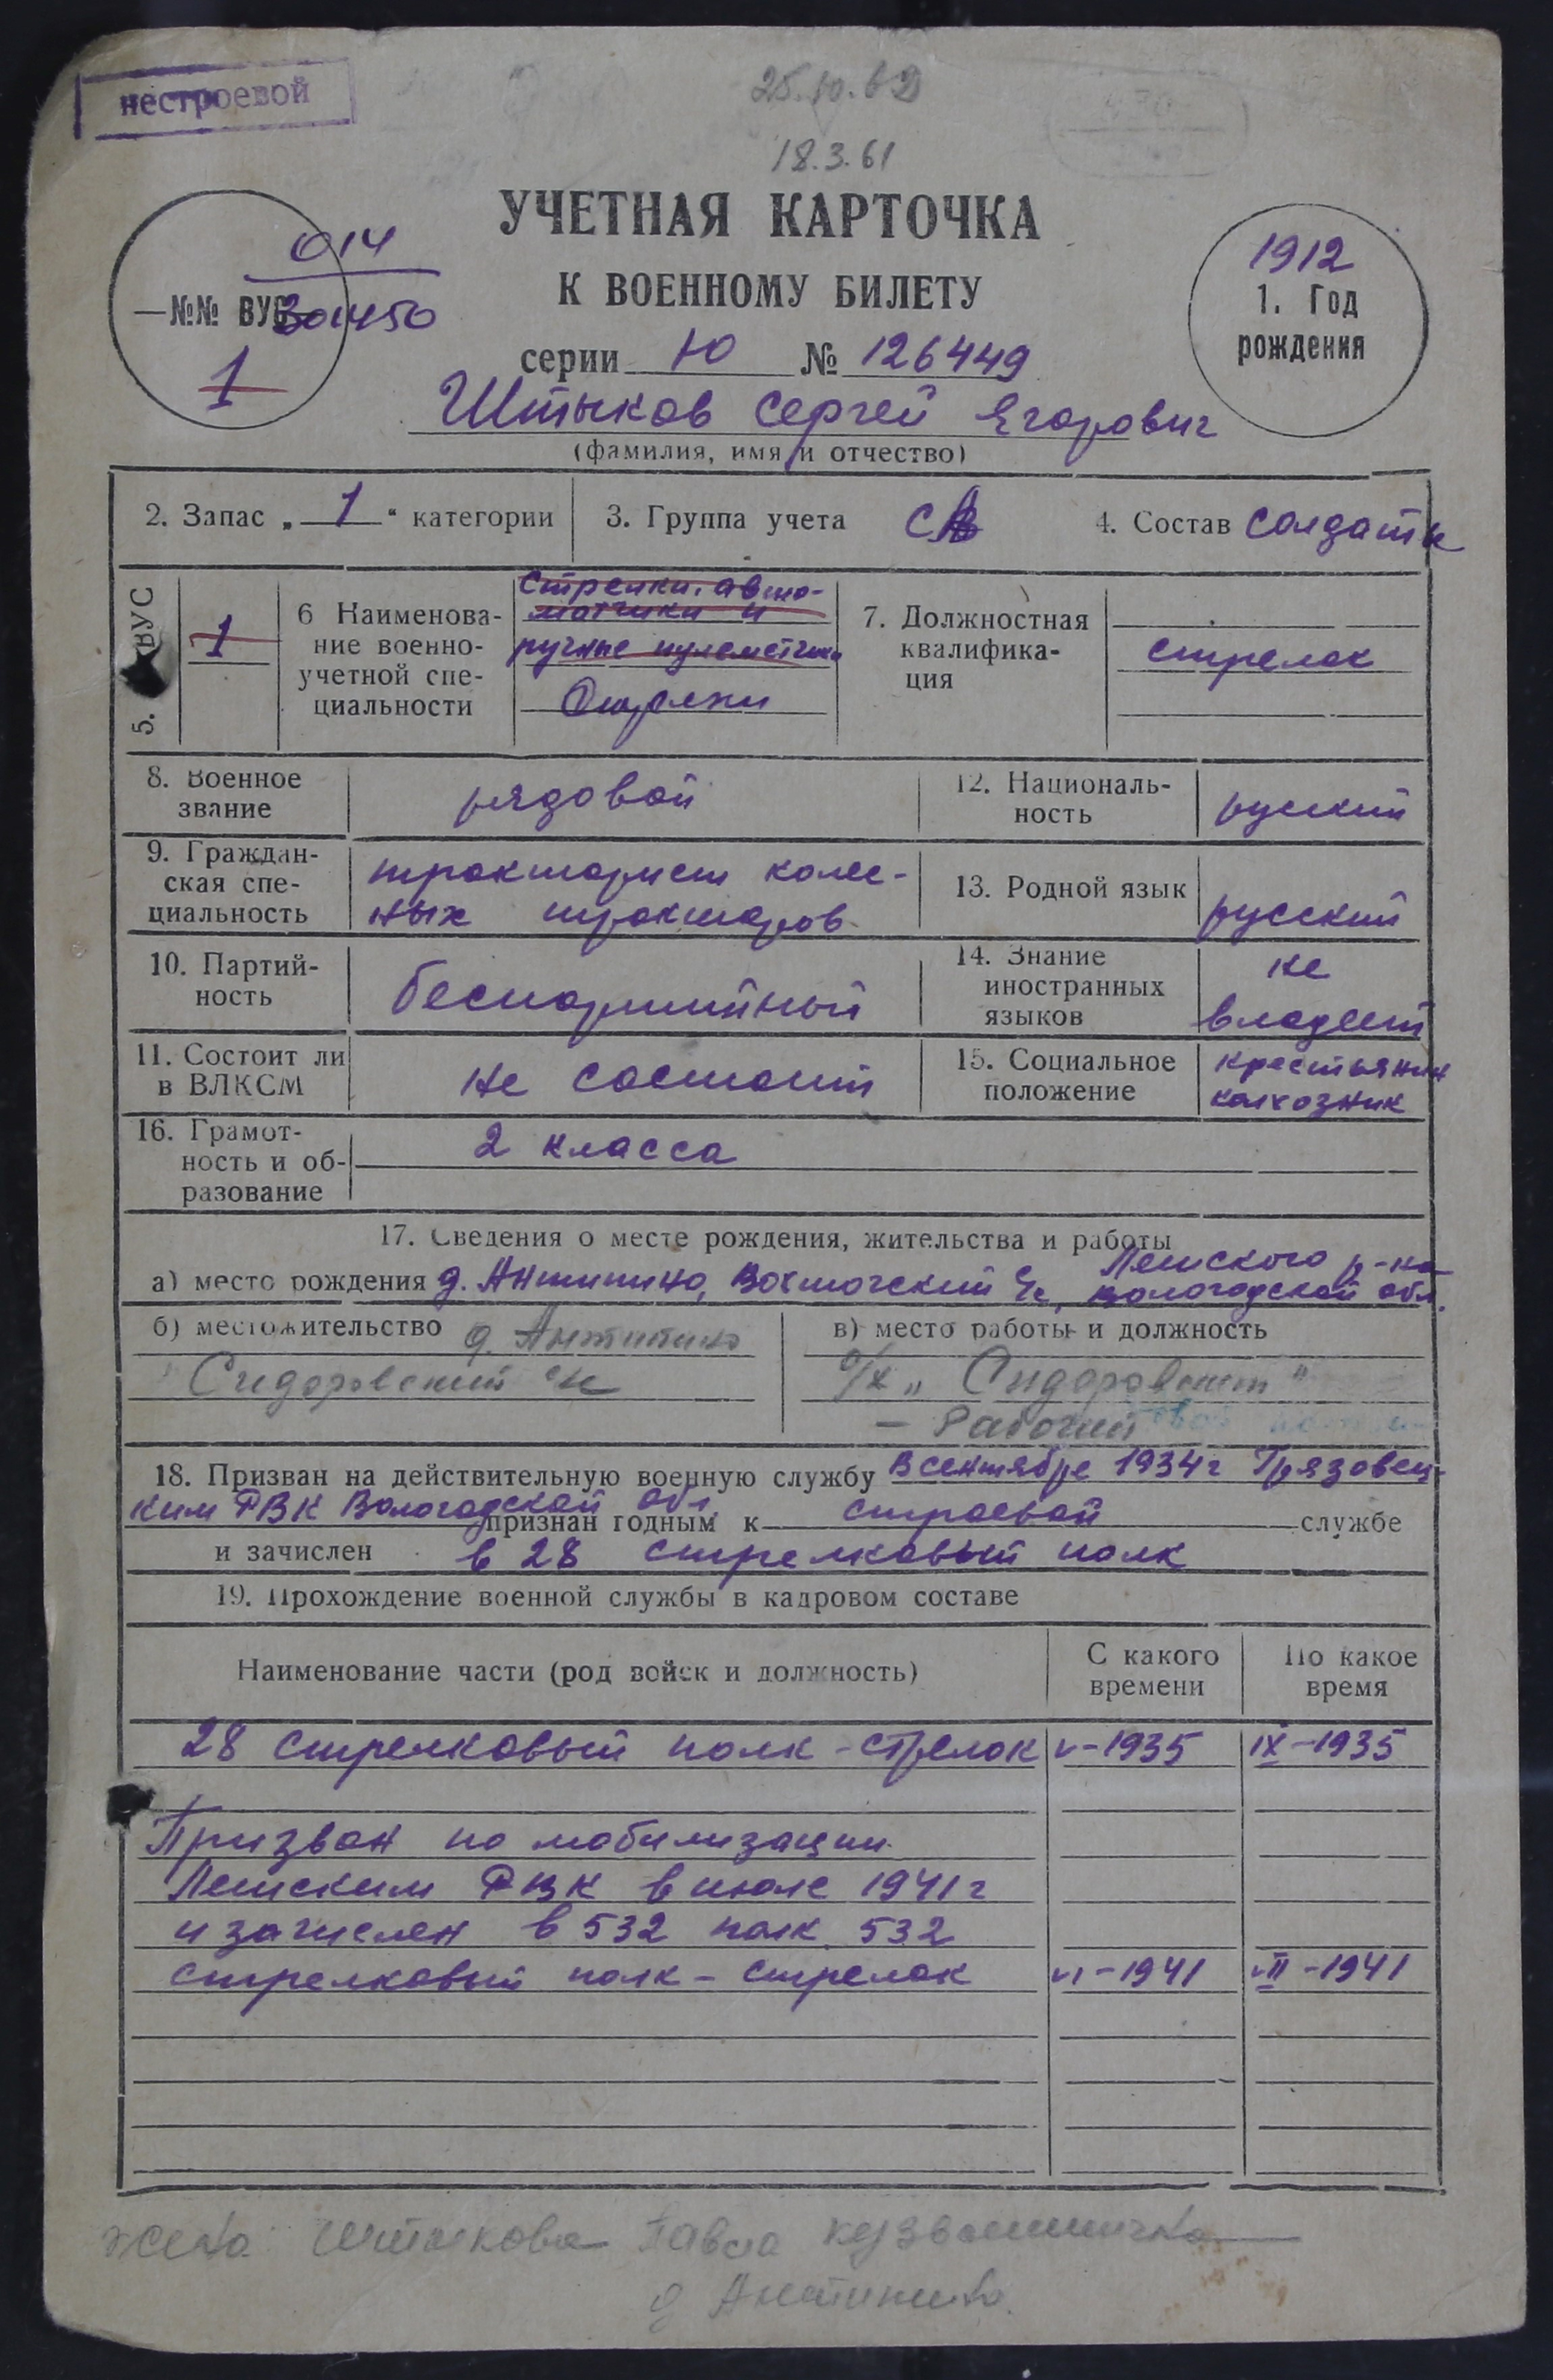 нестроевой
25.10.62
18.3.61
УЧЕТНАЯ КАРТОЧКА
К ВОЕННОМУ БИЛЕТУ
серии Ю № 126449
014
№№ ВУС 301450
1
1912
1. Год
рождения
Штыков Сергей Егорович
(фамилия, имя и отчество)
2. Запас „ 1 “ категории
3. Группа учета СА
4. Состав Солдаты
5. ВУС
1
6 Наименова-
ние военно-
учетной спе-
циальности
Стрелки, авто-
матчики и
ручные пулеметчики
Стрелки
7. Должностная
квалифика-
ция
стрелок
8. Военное
звание
рядовой
12. Националь-
ность
русский
9. Граждан-
ская спе-
циальность
тракторист колес-
ных тракторов
13. Родной язык
русский
10. Партий-
ность
беспартийный
14. Знание
иностранных
языков
не
владеет
11. Состоит ли
в ВЛКСМ
не состоит
15. Социальное
положение
крестьянин
колхозник
16. Грамот-
ность и об-
разование
2 класса
17. Сведения о месте рождения, жительства и работы
Лежского р-на
а) место рождения д. Антипино, Вохтожский с/с, Вологодской обл.
б) местожительство д. Антипино
Сидоровский с/с
в) место работы и должность
с/х „ Сидоровский "
- Рабочий
18. Призван на действительную военную службу В сентябре 1934г Грязовец-
ким РВК Вологодской обл. признан годным к строевой службе
и зачислен в 28 стрелковый полк
19. Прохождение военной службы в кадровом составе
Наименование части (род войск и должность)
С какого
времени
По какое
время
28 стрелковый полк - стрелок V-1935 IX-1935
Призван по мобилизации
Лежским РВК в июле 1941г
и зачислен в 532 полк 532
стрелковый полк - стрелок VI-1941 VII-1941
жена Штыкова Павла
д Антипино